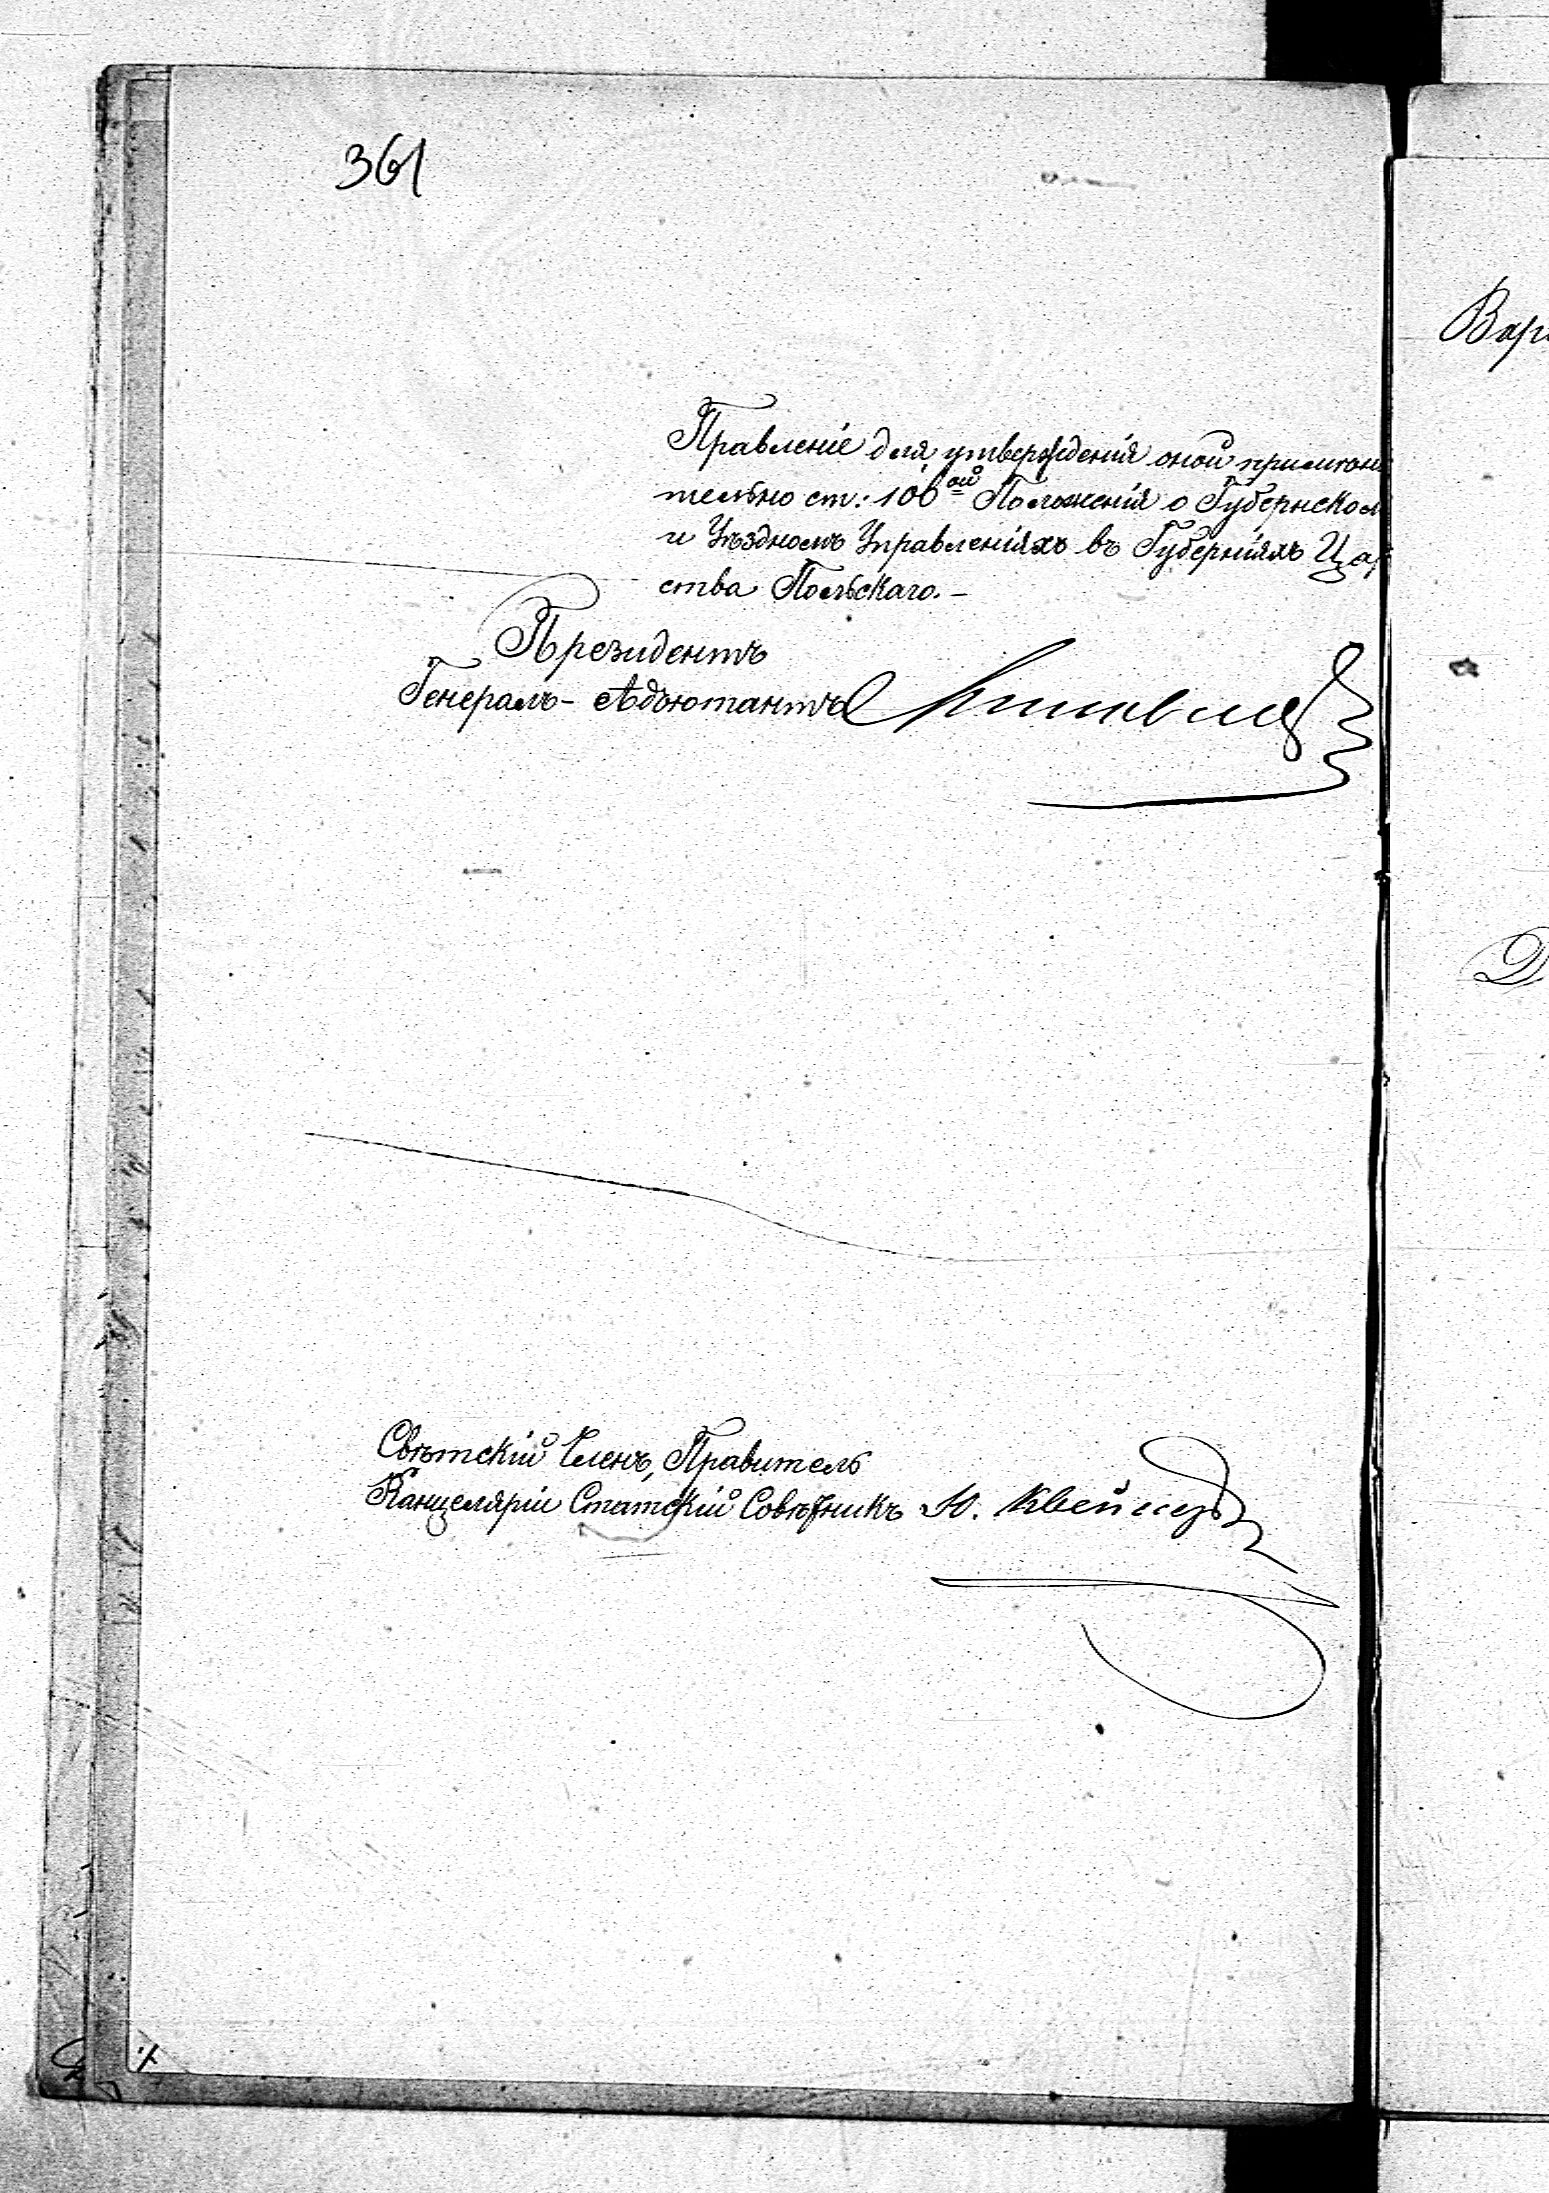 361
Правленіе для утвержденія оной примѣни
тельно ст: 106ой Положенія о Губернском
и Уѣздномъ Управленіяхъ въ Губерніяхъ Цар
ства Польскаго. –
Президентъ
Генералъ-Адъютантъ
Свѣтскій Членъ, Правитель
Канцеляріи Статскій Совѣтникъ Ю.
Вар